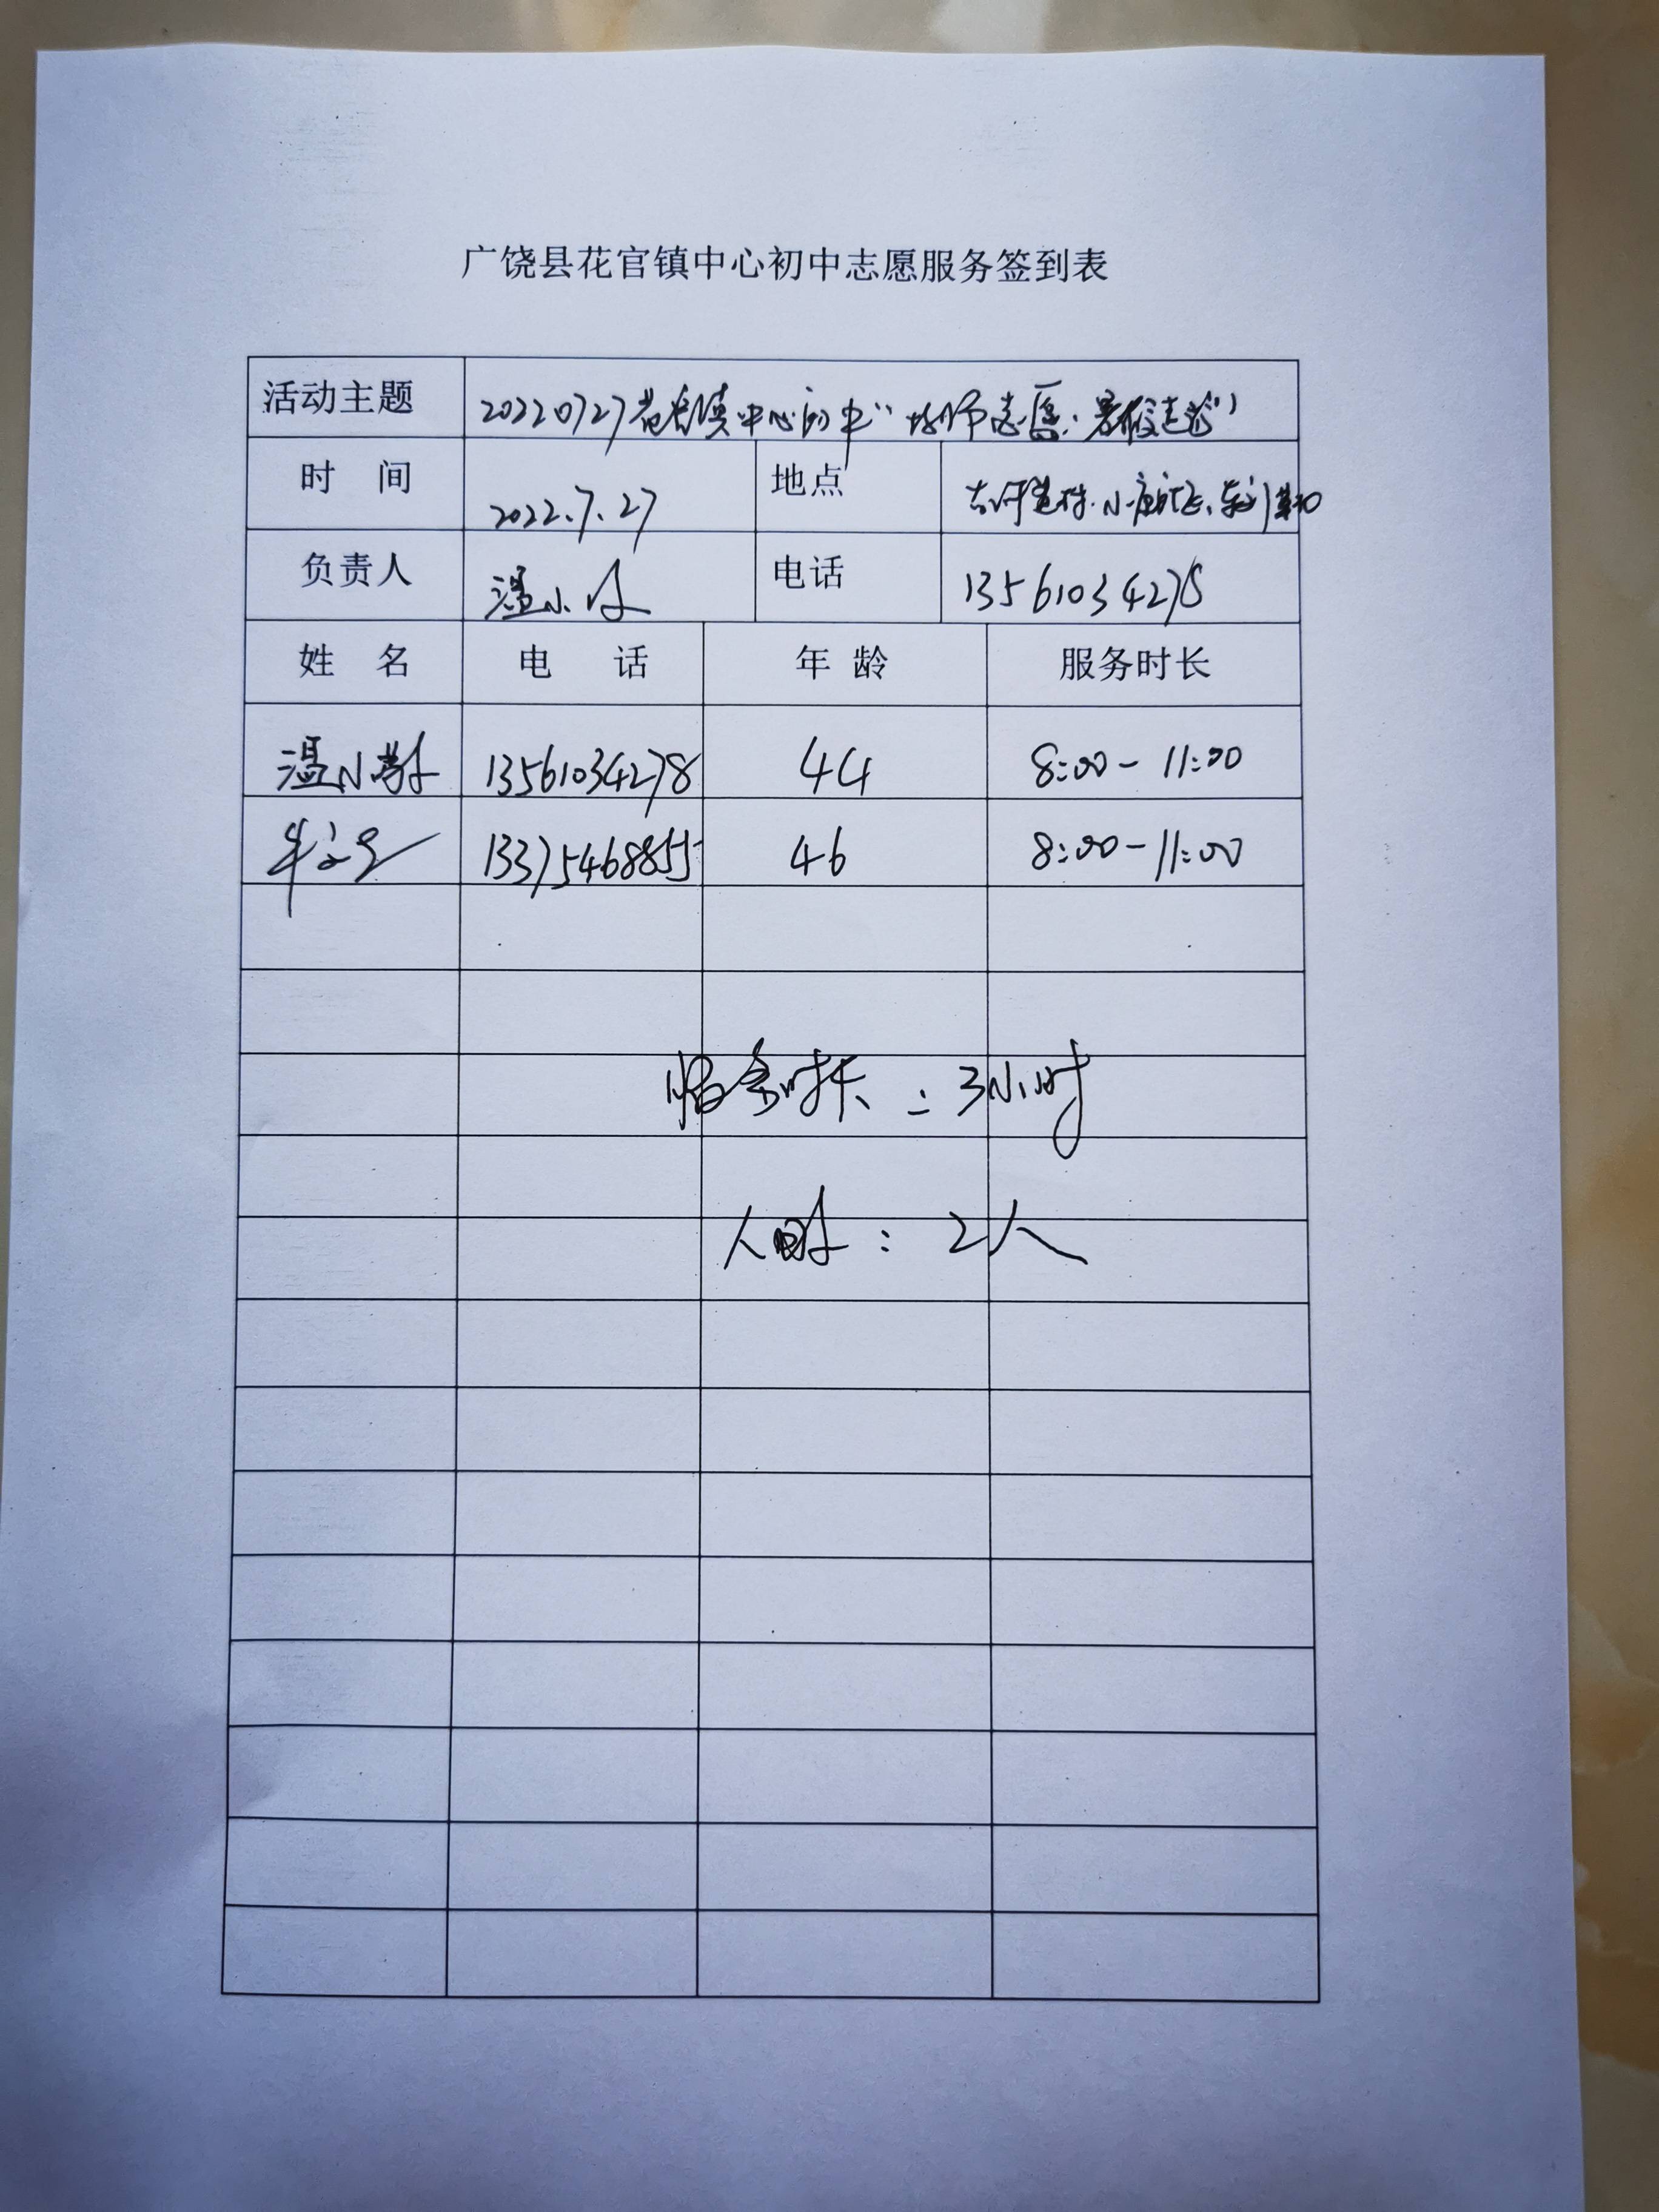 广饶县花官镇中心初中志愿服务签到表
活动主题 20220727花官镇中心初中“教师志愿、暑假走访”
时 间 2022.7.27 地点
负责人 温小 电话 13561034278
姓 名 电 话 年 龄 服务时长
温小 13561034278 44 8:00-11:00
牛 13375468855 46 8:00-11:00
服务时长:3小时
人 : 2人